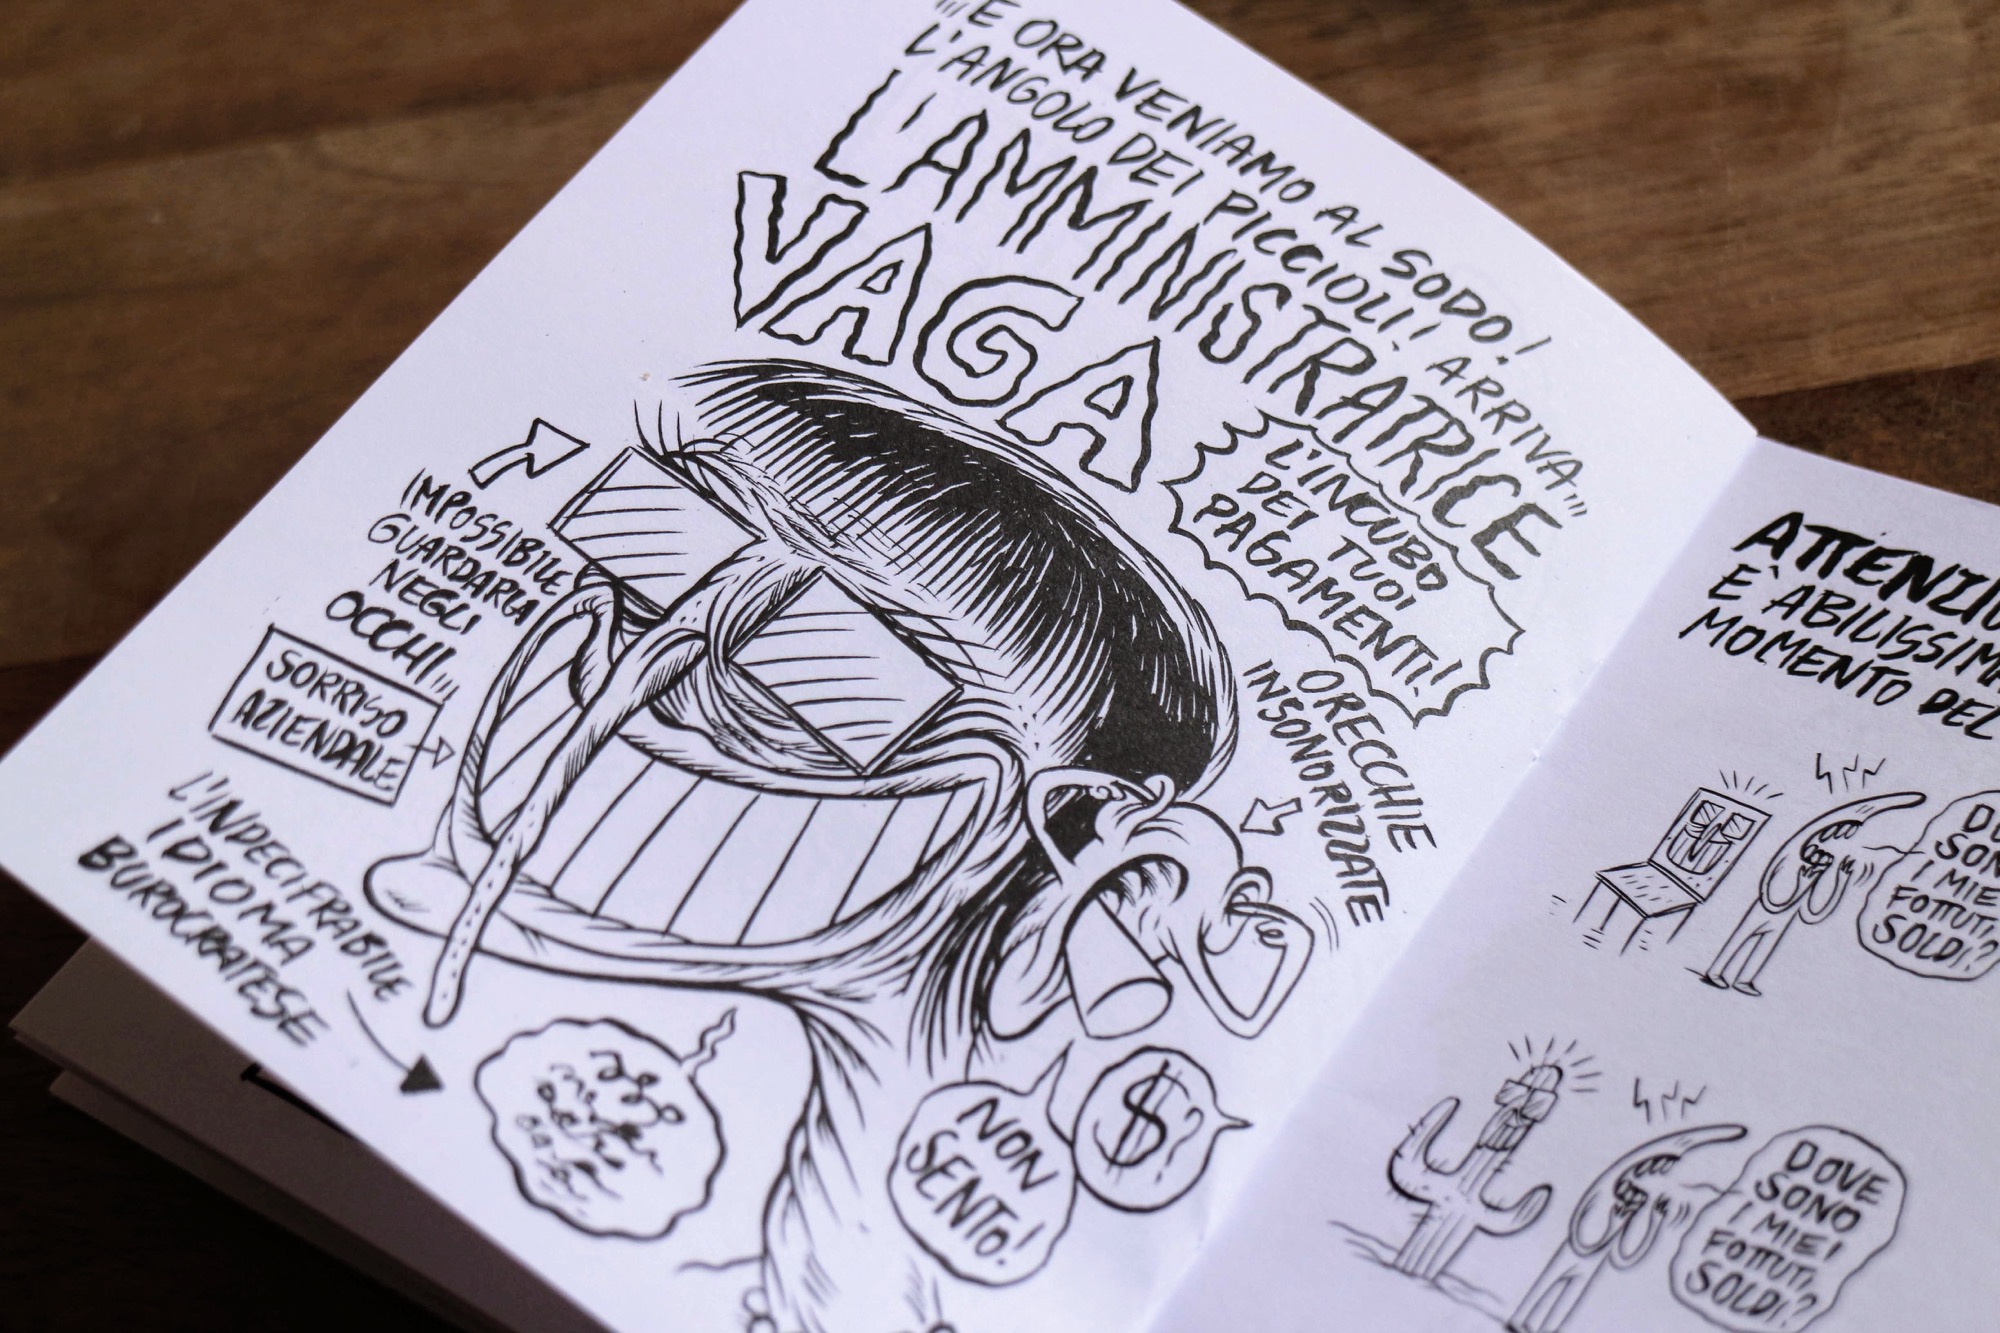 ...E ORA VENIAMO AL SODO!
L'ANGOLO DEI PICCIOLI! ARRIVA...
L'AMMINISTRATRICE
VAGA
L'INCUBO
DEI TUOI
PAGAMENTI!
IMPOSSIBILE
GUARDARLA
NEGLI
OCCHI...
SORRISO
AZIENDALE
ORECCHIE
INSONORIZZATE
L'INDECIFRABILE
IDIOMA
BUROCRATESE
NON
SENTO!
$
MOMENTO DEL
SOLDI?
I MIEI
FOTTUTI
DOVE
SONO
I MIEI
FOTTUTI
SOLDI?